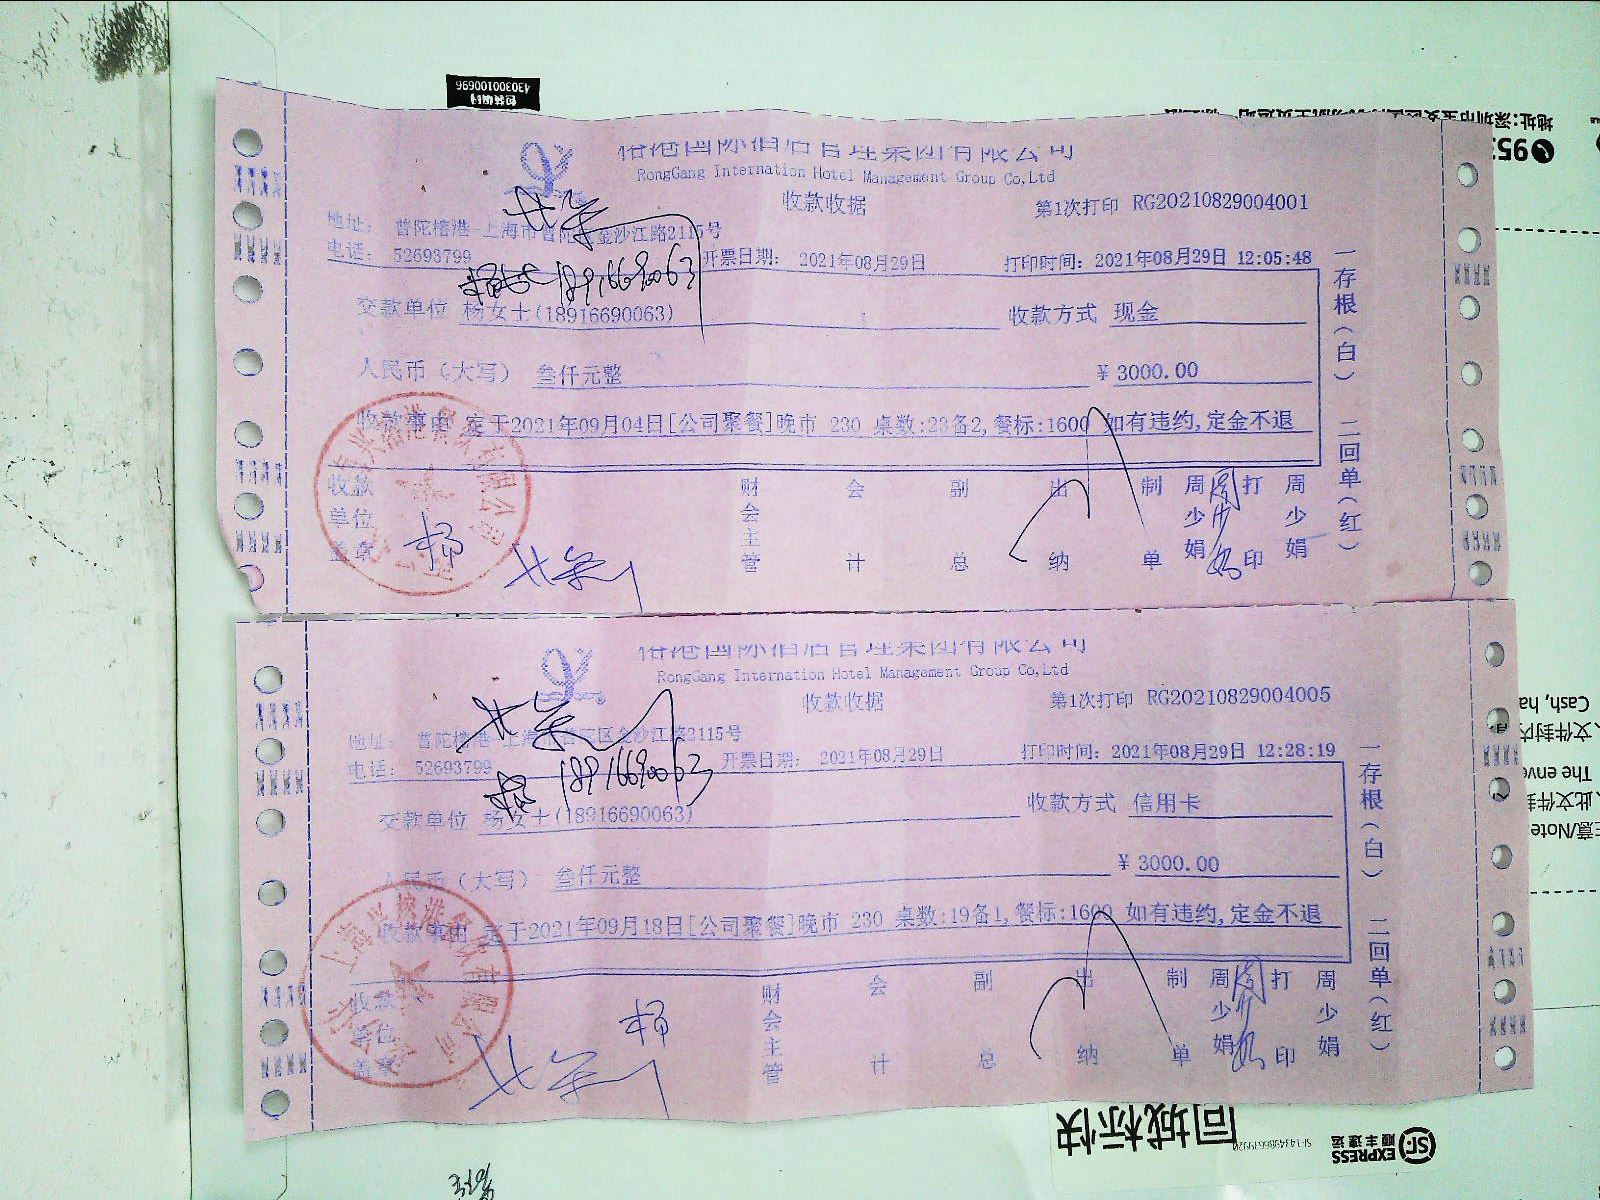 包装编码
4303001100696
榕港国际酒店管理集团有限公司
RongGang Internation Hotel Management Group Co,Ltd
收款收据
第1次打印 RG20210829004001
地址: 普陀榕港-上海市普陀区金沙江路2115号
电话: 52693799
开票日期: 2021年08月29日
打印时间: 2021年08月29日 12:05:48
18916690063
交款单位 杨女士(18916690063)
收款方式 现金
人民币(大写) 叁仟元整
¥ 3000.00
收款事由 定于2021年09月04日[公司聚餐]晚市 230 桌数:23备2,餐标:1600 如有违约,定金不退
收款单位盖章
财会主管
会计
副总
出纳
制单
周少娟
周少娟
打印
周少娟
杨
一存根(白) 二回单(红)
榕港国际酒店管理集团有限公司
RongGang Internation Hotel Management Group Co,Ltd
收款收据
第1次打印 RG20210829004005
地址: 普陀榕港-上海市普陀区金沙江路2115号
电话: 52693799
开票日期: 2021年08月29日
打印时间: 2021年08月29日 12:28:19
18916690063
交款单位 杨女士(18916690063)
收款方式 信用卡
人民币(大写) 叁仟元整
¥ 3000.00
收款事由 定于2021年09月18日[公司聚餐]晚市 230 桌数:19备1,餐标:1600 如有违约,定金不退
收款单位盖章
财会主管
会计
副总
出纳
制单
周少娟
周少娟
打印
周少娟
杨
一存根(白) 二回单(红)
同城标快
SF EXPRESS
顺丰速运
Cash, ha
文件封内
The enve
此文件封
意/Note
地址:深圳市宝安区
953